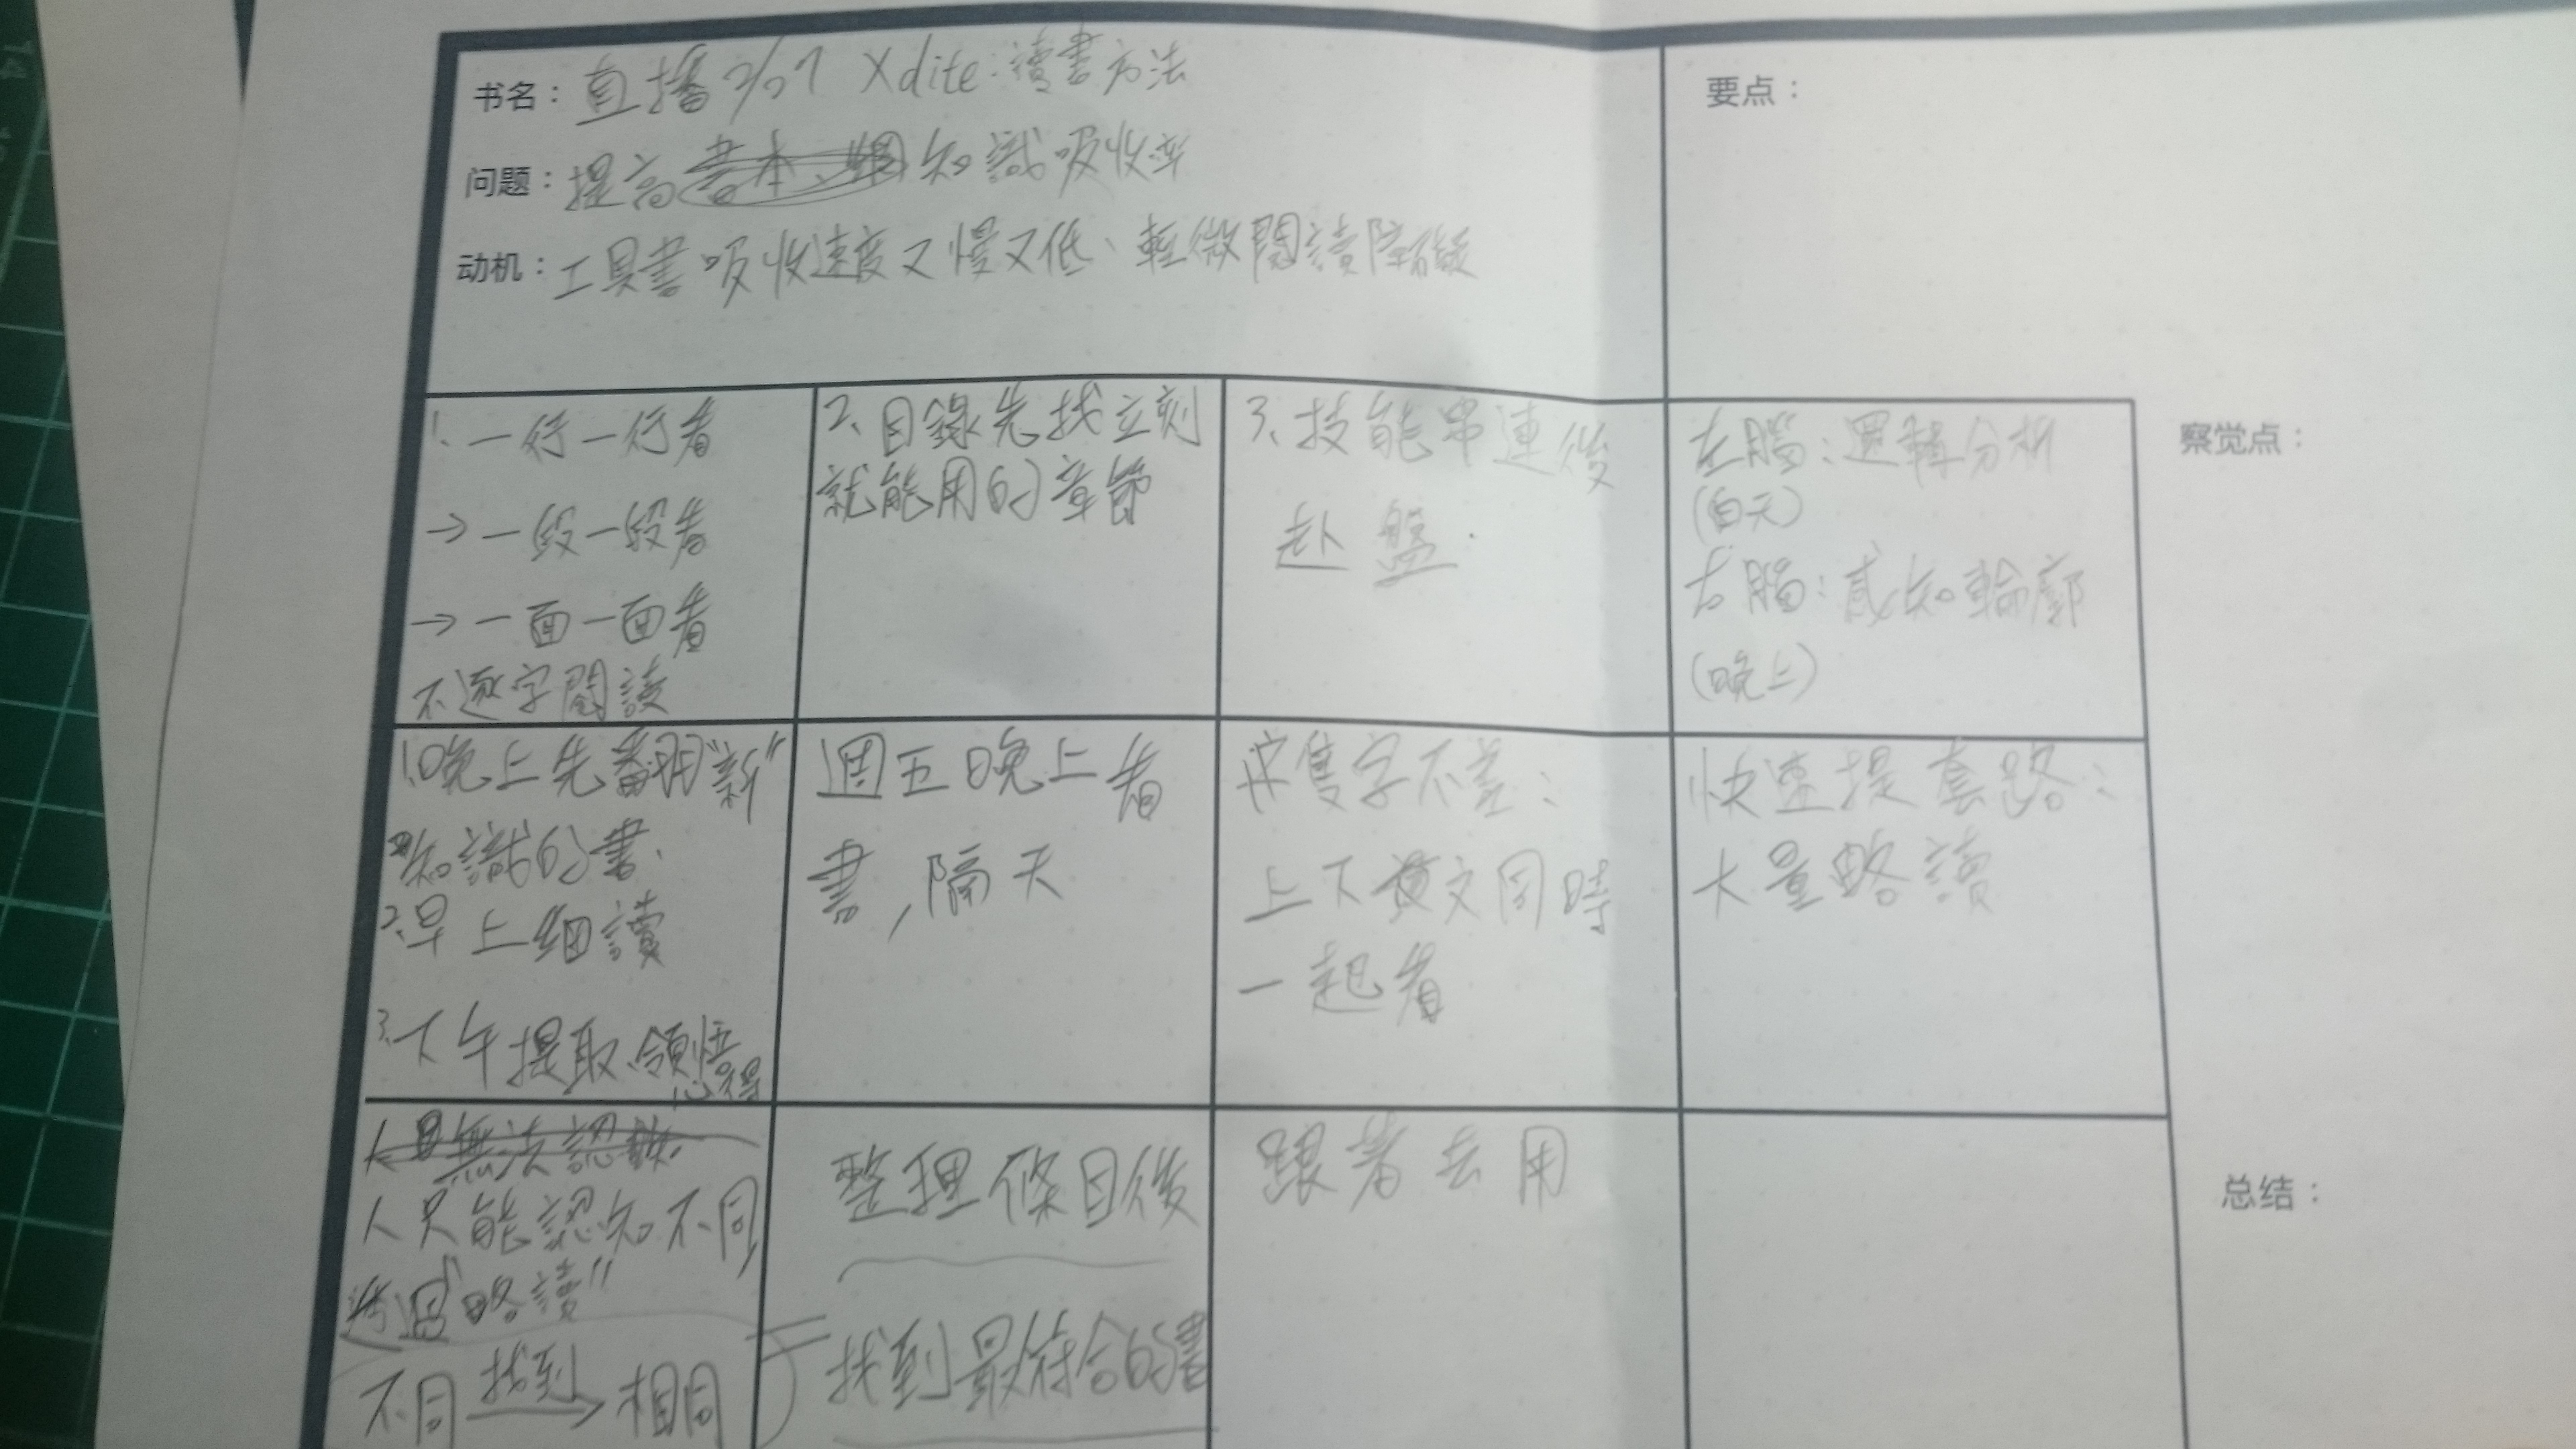 书名： 直播 2/27 Xdite：讀書方法
问题： 提高 知識吸收率
动机： 工具書吸收速度又慢又低、輕微閱讀障礙
要点：
1、一行一行看
→一段一段看
→一面一面看
不逐字閱讀
2、目錄先找立刻
就能用的章節
3、技能串連後
赴盤
左腦：邏輯分析
(白天)
右腦：感知輪廓
(晚上)
察觉点：
1.晚上先翻閱"新"
知識的書、
2.早上細讀
3.下午提取、領悟
心得
週五晚上看
書，隔天
隻字不差：
上下文同時
一起看
快速提套路：
大量略讀
人只能認知不同
透過"略讀"
不同 找到→ 相同
整理條目後
找到最符合的書
跟著去用
总结：